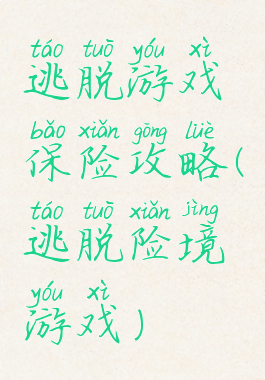 táo tuō yóu xì
逃脱游戏
bǎo xiǎn gōng lüè
保险攻略(
táo tuō xiǎn jìng
逃脱险境
yóu xì
游戏)